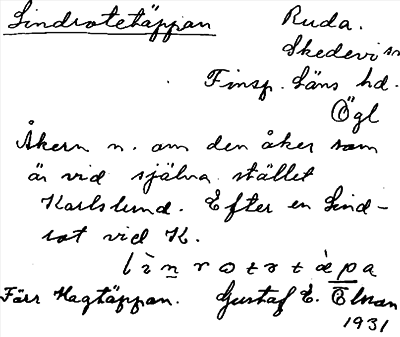 Lindrotetäppan
Ruda.
Skedevi sn
Finsp. Läns hd.
Ögl
Åkern n. om den åker som
är vid själva stället
Karlslund. Efter en lind-
rot vid K.
lìnrotetàpa
Förr Hagtäppan. Gustaf E.
1931